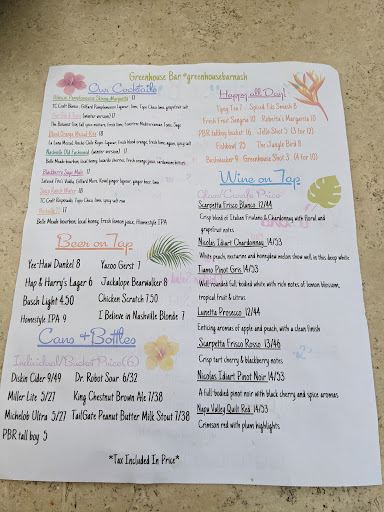 Greenhouse Bar @greenhousebarnash
Our Cocktails
Hibiscus Pamplemousse Skinny Margarita 17
TC Craft Blanco, Giffard Pamplemousse Liqueur, lime, Topo Chico lime, grapefruit salt
(winter version) 17
Blood Orange Mezcal Kiss 18
Nashville Old Fashioned (winter version) 17
Belle Meade bourbon, local honey, lavender cherries, fresh orange juice, cardamom bitters
Blackberry Sage Mule 17
Ranch Water 18
TC Craft Reposado, Topo Chico lime, spicy salt rim
17
Belle Meade bourbon, local honey, fresh lemon juice, Homestyle IPA
Beer on Tap
Yee-Haw Dunkel 8 Yazoo Gerst 7
Hap & Harry's Lager 6 Jackalope Bearwalker 8
Busch Light 4.50 Chicken Scratch 7.50
Homestyle IPA 9 I Believe in Nashville Blonde 7
Cans + Bottles
Individual/Bucket Price(6)
Diskin Cider 9/49 Dr. Robot Sour 6/32
Miller Lite 5/27 King Chestnut Brown Ale 7/38
Michelob Ultra 5/27 TailGate Peanut Butter Milk Stout 7/38
PBR tall boy 5
*Tax Included In Price*
Happy all Day!
Tipsy Tea 7 Spiced Fab Smash 8
Fresh Fruit Sangria 10 Robertita's Margarita 10
PBR tallboy bucket 16 Jello Shot 5 (3 for 10)
Fishbowl 25 The Jungle Bird 8
Bushwacker 9 Greenhouse Shot 3 (4 for 10)
Wine on Tap
Glass/Carafe Price
Scarpetta Frisco Blanco 12/44
Crisp blend of Italian Friulano & Chardonnay with floral and
grapefruit notes
Nicolas Idiart Chardonnay 14/53
White peach, nectarine and honeydew melon show well in this deep white
Tiamo Pinot Gris 14/53
Well rounded full bodied white with rich notes of lemon blossom,
tropical fruit & citrus
Lunetta Prosecco 12/44
Enticing aromas of apple and peach, with a clean finish
Scarpetta Frisco Rosso 13/46
Crisp tart cherry & blackberry notes
Nicolas Idiart Pinot Noir 14/53
A full bodied pinot noir with black cherry and spice aromas
Napa Valley Quilt Red 14/53
Crimson red with plum highlights